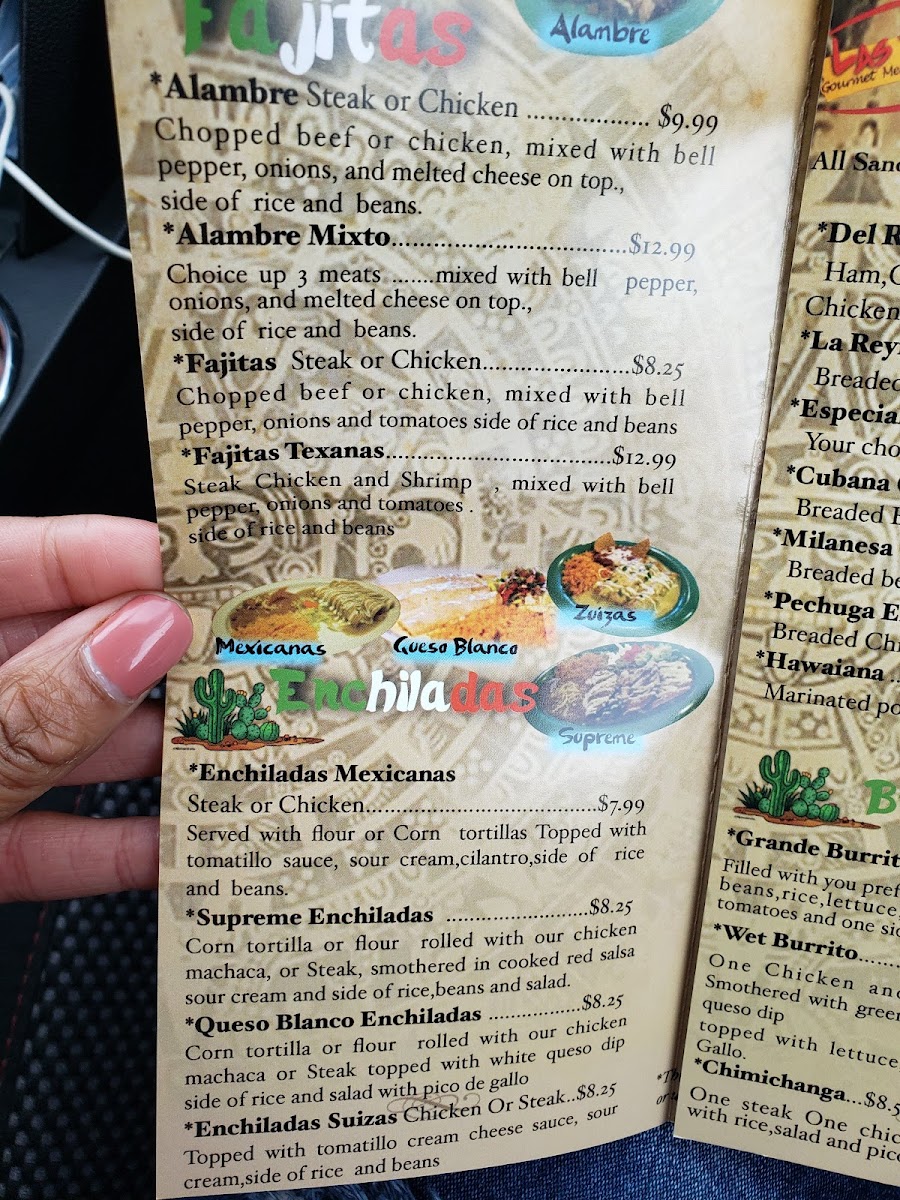 Fajitas
Alambre
*Alambre Steak or Chicken .................. $9.99
Chopped beef or chicken, mixed with bell
pepper, onions, and melted cheese on top.,
side of rice and beans.
*Alambre Mixto................................$12.99
Choice up 3 meats .......mixed with bell pepper,
onions, and melted cheese on top.,
side of rice and beans.
*Fajitas Steak or Chicken......................$8.25
Chopped beef or chicken, mixed with bell
pepper, onions and tomatoes side of rice and beans
*Fajitas Texanas..................................$12.99
Steak Chicken and Shrimp , mixed with bell
pepper, onions and tomatoes .
side of rice and beans
Mexicanas
Queso Blanco
Zuizas
Enchiladas
Supreme
*Enchiladas Mexicanas
Steak or Chicken...................................$7.99
Served with flour or Corn tortillas Topped with
tomatillo sauce, sour cream,cilantro,side of rice
and beans.
*Supreme Enchiladas ......................$8.25
Corn tortilla or flour rolled with our chicken
machaca, or Steak, smothered in cooked red salsa
sour cream and side of rice,beans and salad.
*Queso Blanco Enchiladas ..................$8.25
Corn tortilla or flour rolled with our chicken
machaca or Steak topped with white queso dip
side of rice and salad with pico de gallo
*Enchiladas Suizas Chicken Or Steak..$8.25
Topped with tomatillo cream cheese sauce, sour
cream,side of rice and beans
Las
Gourmet
All
*Del
Ham,
Chicken
*La
Breaded
Your
*Cubana
Breaded
*Milanesa
Breaded
*Pechuga
Breaded
*Hawaiana ..
Marinated
B
*Grande
Filled with you
beans,rice,lettuce,
tomatoes and one
*Wet Burrito.......
One Chicken
Smothered with
queso dip
topped with lettuce
Gallo.
*Chimichanga...$8.5
One steak One
with rice,salad and